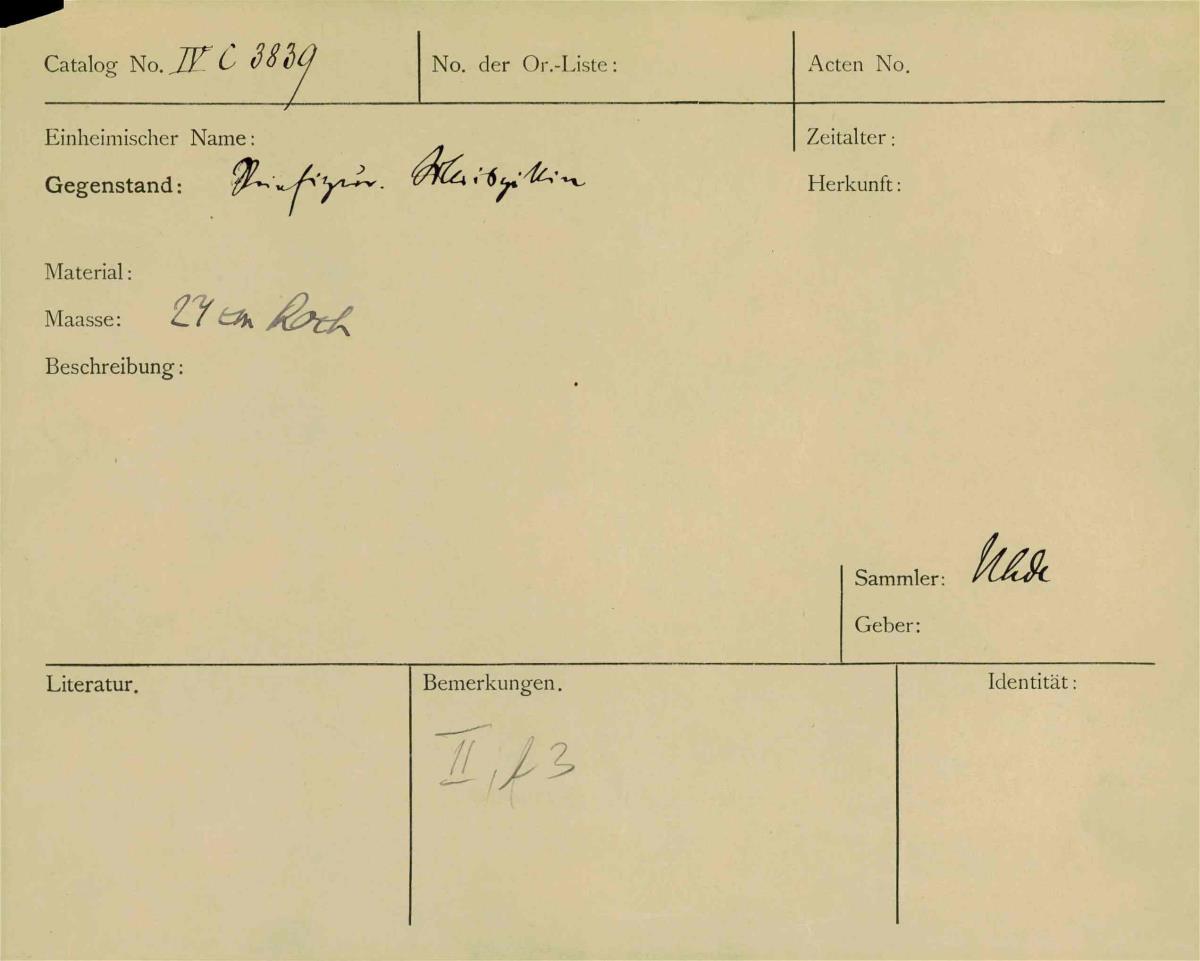 Catalog No. IV C 3839
No. der Or.-Liste:
Acten No.
Einheimischer Name:
Zeitalter:
Gegenstand: Steinfigur.
Herkunft:
Material:
Maasse: 24 cm hoch
Beschreibung:
Sammler: Uhde
Geber:
Literatur.
Bemerkungen.
Identität:
II, f 3